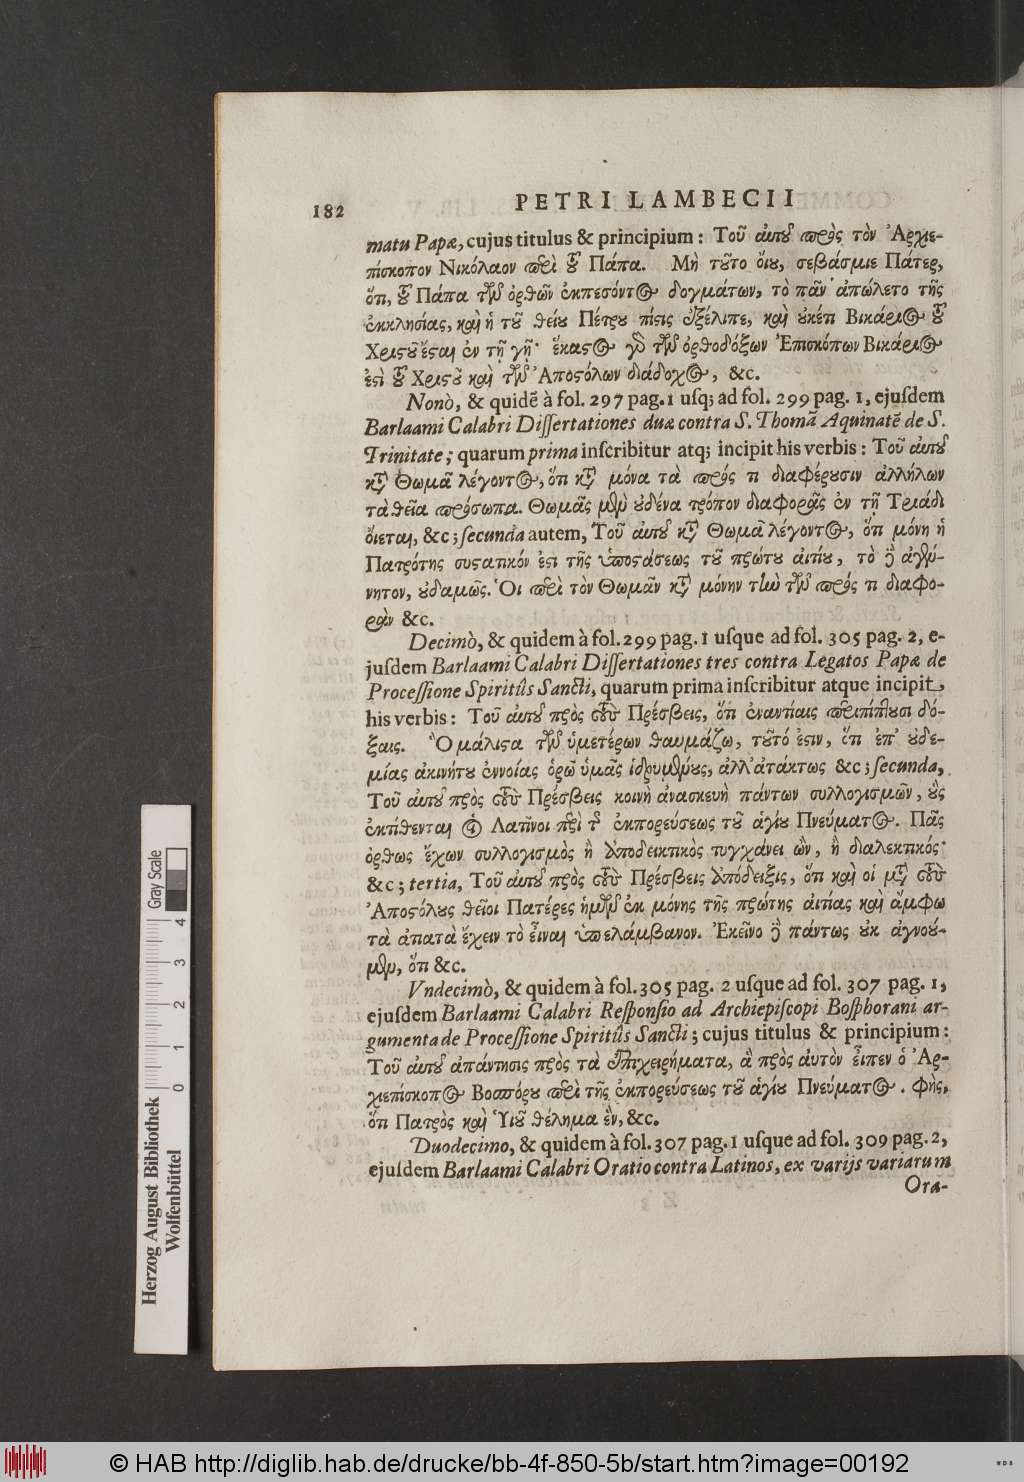 182
PETRI LAMBECII
matu Papæ, cujus titulus & principium : Τοῦ αὐτοῦ πρὸς τὸν Ἀρχιε-
πίσκοπον Νικόλαον περὶ τοῦ Πάπα. Μὴ τοῦτο οἴου, σεβάσμιε Πάτερ,
ὅτι, τοῦ Πάπα τῶν ὀρθῶν ἐκπεσόντος δογμάτων, τὸ πᾶν ἀπώλετο τῆς
ἐκκλησίας, καὶ ἡ τοῦ θείου Πέτρου πίστις ἐξέλιπε, καὶ οὐκέτι Βικάριος τοῦ
Χριστοῦ ἔσται ἐν τῇ γῇ· ἕκαστος γὸ τῶν ὀρθοδόξων Ἐπισκόπων Βικάριος
ἐστὶ τοῦ Χριστοῦ καὶ τῶν Ἀποστόλων διάδοχος, &c.
Nonò, & quidē à fol. 297 pag. 1 usq; ad fol. 299 pag. 1, ejusdem
Barlaami Calabri Dissertationes duæ contra S. Thomā Aquinatē de S.
Trinitate; quarum prima inscribitur atq; incipit his verbis : Τοῦ αὐτοῦ
κατὰ Θωμᾶ λέγοντος, ὅτι κατὰ μόνα τὰ πρός τι διαφέρουσιν ἀλλήλων
τὰ θεῖα πρόσωπα. Θωμᾶς μὲν οὐδένα τρόπον διαφορᾶς ἐν τῇ Τριάδι
οἴεται, &c; secunda autem, Τοῦ αὐτοῦ κατὰ Θωμᾶ λέγοντος, ὅτι μόνη ἡ
Πατρότης συστατικόν ἐστι τῆς ὑποστάσεως τοῦ πρώτου αἰτίου, τὸ δὲ ἀγέν-
νητον, οὐδαμῶς. Οἱ περὶ τὸν Θωμᾶν κατὰ μόνην τὴν τῶν πρός τι διαφο-
ρὰν &c.
Decimò, & quidem à fol. 299 pag. 1 usque ad fol. 305 pag. 2, e-
jusdem Barlaami Calabri Dissertationes tres contra Legatos Papæ de
Processione Spiritûs Sancti, quarum prima inscribitur atque incipit,
his verbis : Τοῦ αὐτοῦ πρὸς τοὺς Πρέσβεις, ὅτι ἐναντίαις περιπίπτουσι δό-
ξαις. Ὃ μάλιστα τῶν ὑμετέρων θαυμάζω, τοῦτό ἐστιν, ὅτι ἐπ' οὐδε-
μίας ἀκινήτου ἐννοίας ὁρῶ ὑμᾶς ἱδρυμένους, ἀλλ' ἀτάκτως &c; secunda,
Τοῦ αὐτοῦ πρὸς τοὺς Πρέσβεις κοινὴ ἀνασκευὴ πάντων συλλογισμῶν, οὓς
ἐκτίθενται οἱ Λατῖνοι περὶ τῆς ἐκπορεύσεως τοῦ ἁγίου Πνεύματος. Πᾶς
ὀρθως ἔχων συλλογισμὸς ἢ ἀποδεικτικὸς τυγχάνει ὢν, ἢ διαλεκτικός·
&c; tertia, Τοῦ αὐτοῦ πρὸς τοὺς Πρέσβεις ἀπόδειξις, ὅτι καὶ οἱ μετὰ τοὺς
Ἀποστόλους θεῖοι Πατέρες ἡμῶν ἐκ μόνης τῆς πρώτης αἰτίας καὶ ἄμφω
τὰ αἰτιατὰ ἔχειν τὸ εἶναι ὑπελάμβανον. Ἐκεῖνο δὲ πάντως οὐκ ἀγνοού-
μεν, ὅτι &c.
Vndecimò, & quidem à fol. 305 pag. 2 usque ad fol. 307 pag. 1,
ejusdem Barlaami Calabri Responsio ad Archiepiscopi Bosphorani ar-
gumenta de Processione Spiritûs Sancti; cujus titulus & principium:
Τοῦ αὐτοῦ ἀπάντησις πρὸς τὰ ἐπιχειρήματα, ἃ πρὸς αὐτὸν εἶπεν ὁ Ἀρ-
χιεπίσκοπος Βοσπόρου περὶ τῆς ἐκπορεύσεως τοῦ ἁγίου Πνεύματος. φὴς,
ὅτι Πατρὸς καὶ Ὑιοῦ θέλημα ἓν, &c.
Duodecimo, & quidem à fol. 307 pag. 1 usque ad fol. 309 pag. 2,
ejusdem Barlaami Calabri Oratio contra Latinos, ex varijs variarum
Ora-
Gray Scale
0 1 2 3 4
Herzog August Bibliothek
Wolfenbüttel
© HAB http://diglib.hab.de/drucke/bb-4f-850-5b/start.htm?image=00192